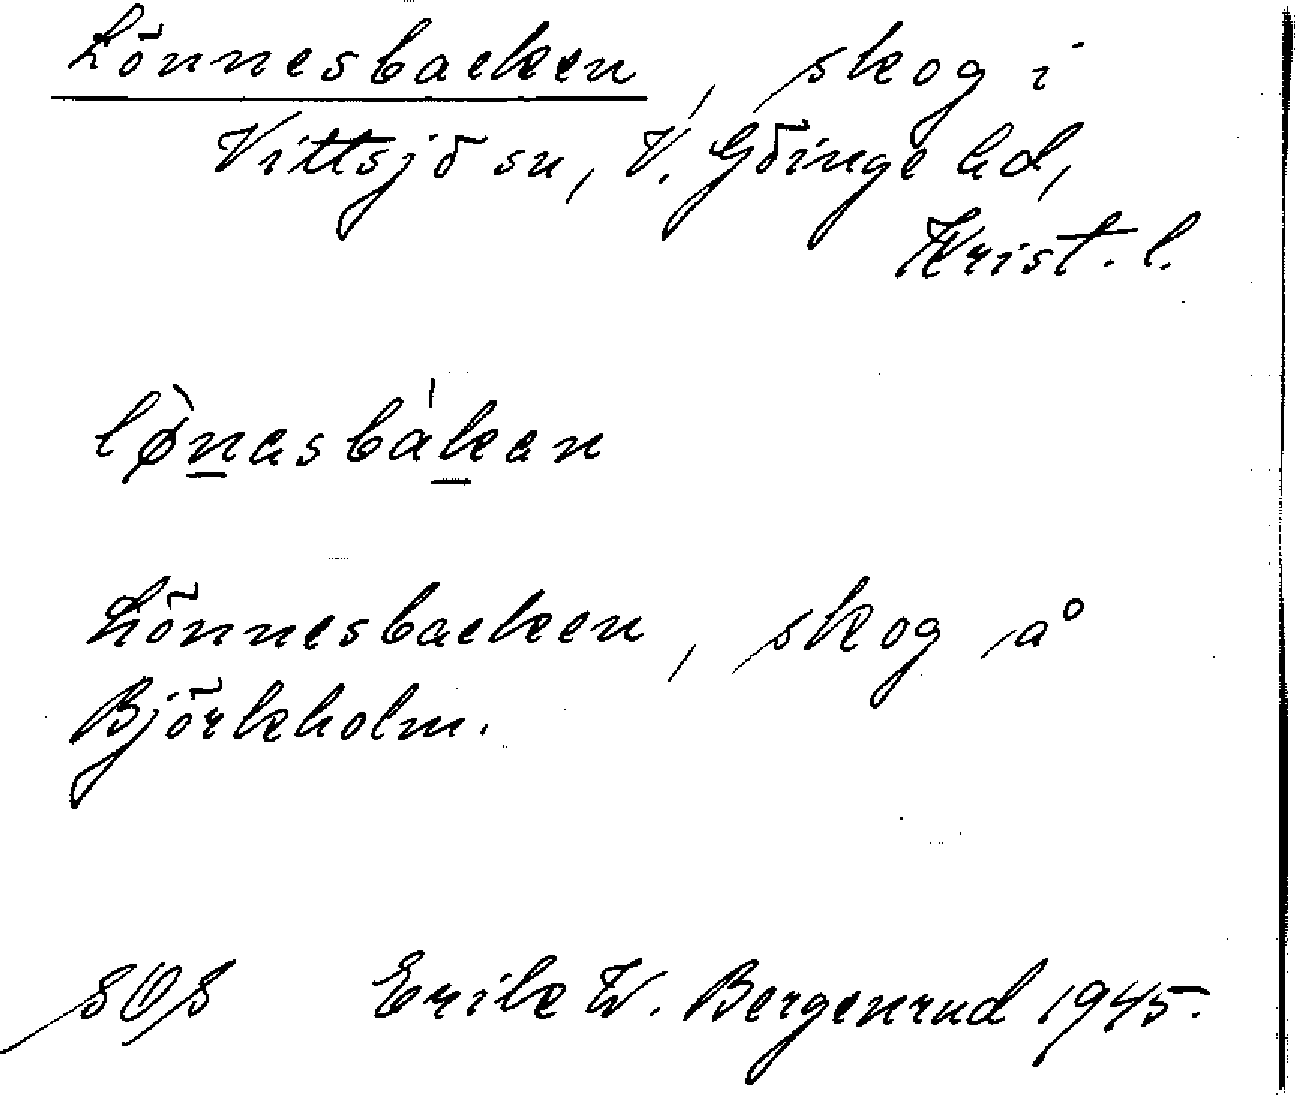 Lönnesbacken, skog i
Vittsjö sn, V. Göinge hd,
Krist. l.
lø̀nasbákan
Lönnesbacken, skog å
Björkholm.
SOS Erik W. Bergenrud 1945.